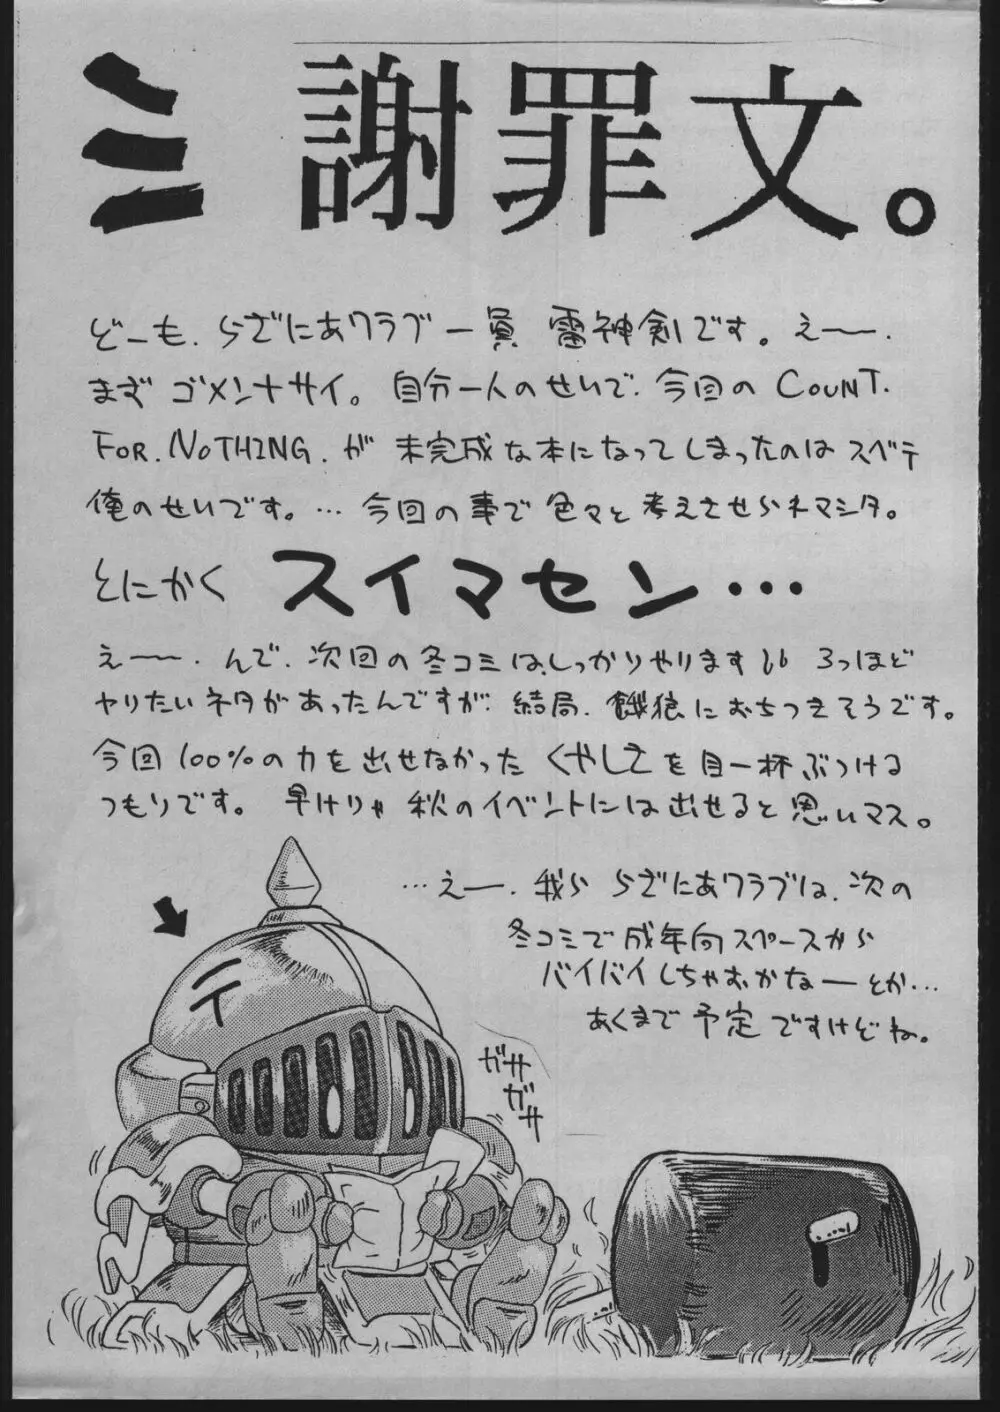 ミ 謝罪文。
どーも、らざにあクラブ一員 雷神剣です。えー〜.
まず ゴメンナサイ。自分一人のせいで、今回の COUNT.
FOR. NOTHING. が 未完成な本になってしまったのは スベテ
俺のせいです。… 今回の事で色々と 考えさせられマシタ。
とにかく スイマセン…
えー〜. んで、次回の冬コミは、しっかりやります 3つほど
ヤりたいネタがあったんですが、結局、餓狼におちつきそうです。
今回 100%の力を出せなかった くやしさを目一杯ぶつける
つもりです。早けりゃ 秋のイベントには出せると思いマス。
…えー、我ら らざにあクラブは、次の
冬コミで成年向スペースから
バイバイしちゃおかなーとか…
あくまで 予定 ですけどね。
ガサ
ガサ